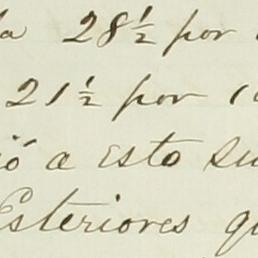 la 28½ por
21½ por
ió a esto su
Esteriores qu